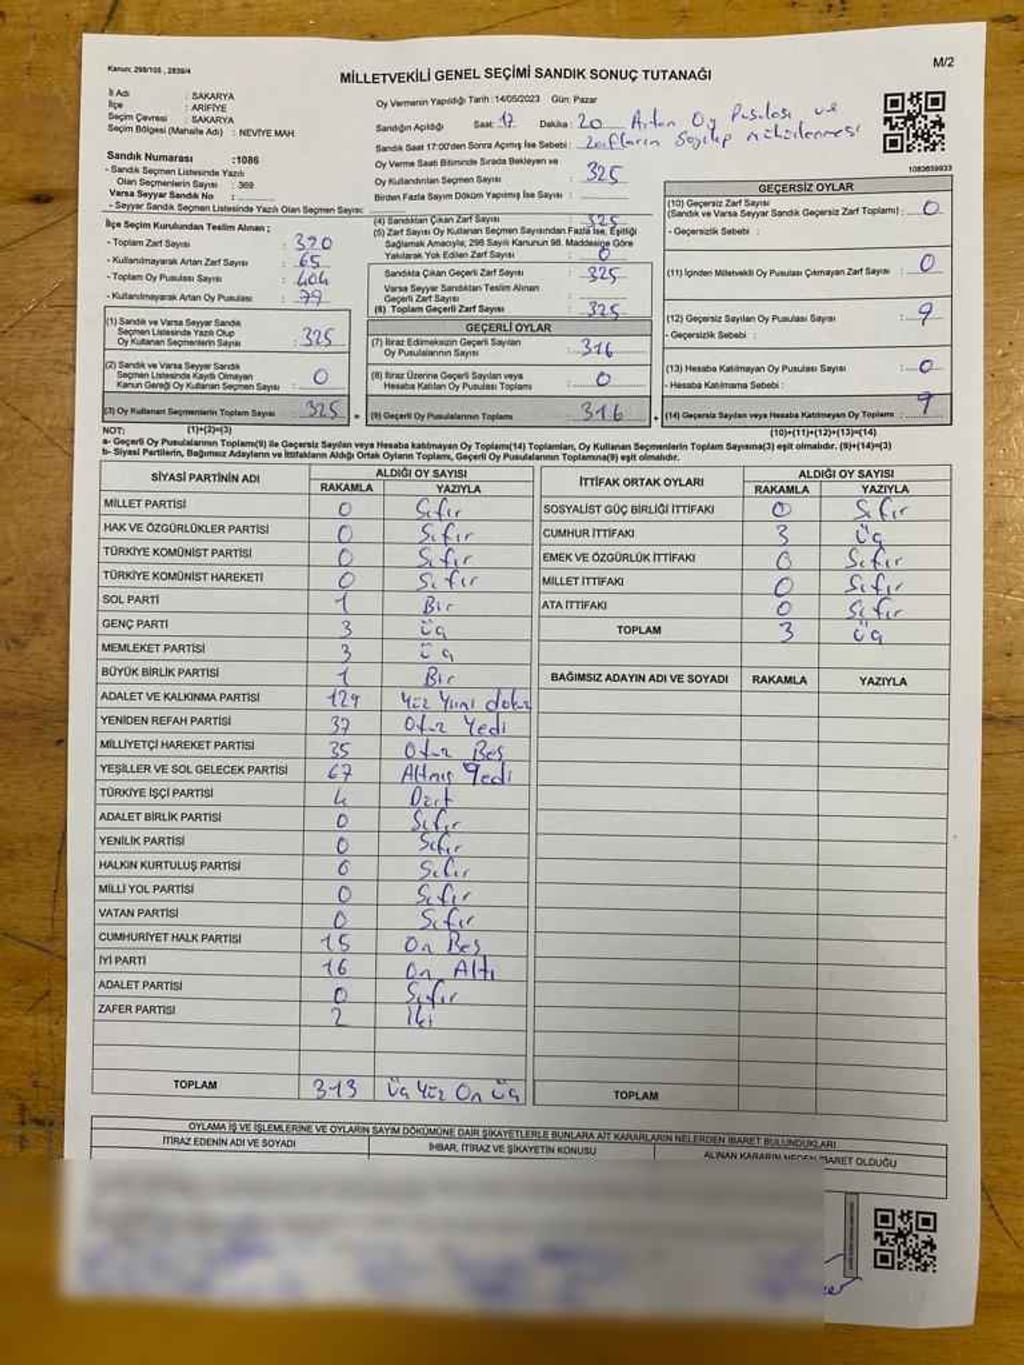 Kanun: 298/105 , 2839/4
M/2
MİLLETVEKİLİ GENEL SEÇİMİ SANDIK SONUÇ TUTANAĞI
İl Adı : SAKARYA
İlçe : ARİFİYE
Seçim Çevresi : SAKARYA
Seçim Bölgesi (Mahalle Adı) : NEVİYE MAH.
Oy Vermenin Yapıldığı Tarih : 14/05/2023 Gün: Pazar
Sandığın Açıldığı Saat: 17 Dakika : 20 Artan Oy Pusulası ve
Sandık Saat 17:00'den Sonra Açılmış İse Sebebi : zarfların Sayılıp mühürlenmesi
Sandık Numarası :1086
- Sandık Seçmen Listesinde Yazılı
Olan Seçmenlerin Sayısı : 369
Varsa Seyyar Sandık No :
- Seyyar Sandık Seçmen Listesinde Yazılı Olan Seçmen Sayısı:
Oy Verme Saati Bitiminde Sırada Bekleyen ve
Oy Kullandırılan Seçmen Sayısı : 325
Birden Fazla Sayım Döküm Yapılmış İse Sayısı :
1083659933
İlçe Seçim Kurulundan Teslim Alınan ;
- Toplam Zarf Sayısı : 320
- Kullanılmayarak Artan Zarf Sayısı : 65
- Toplam Oy Pusulası Sayısı : 404
- Kullanılmayarak Artan Oy Pusulası : 79
(1) Sandık ve Varsa Seyyar Sandık
Seçmen Listesinde Yazılı Olup
Oy Kullanan Seçmenlerin Sayısı : 325
(2) Sandık ve Varsa Seyyar Sandık
Seçmen Listesinde Kaydı Olmayan
Kanun Gereği Oy Kullanan Seçmen Sayısı : 0
(3) Oy Kullanan Seçmenlerin Toplam Sayısı : 325
(4) Sandıktan Çıkan Zarf Sayısı : 325
(5) Zarf Sayısı Oy Kullanan Seçmen Sayısından Fazla İse, Eşitliği
Sağlamak Amacıyla, 298 Sayılı Kanunun 98. Maddesine Göre
Yakılarak Yok Edilen Zarf Sayısı : 0
Sandıkta Çıkan Geçerli Zarf Sayısı : 325
Varsa Seyyar Sandıktan Teslim Alınan
Geçerli Zarf Sayısı :
(6) Toplam Geçerli Zarf Sayısı : 325
GEÇERLİ OYLAR
(7) İtiraz Edilmeksizin Geçerli Sayılan
Oy Pusulalarının Sayısı : 316
(8) İtiraz Üzerine Geçerli Sayılan veya
Hesaba Katılan Oy Pusulası Toplamı : 0
= (9) Geçerli Oy Pusulalarının Toplamı : 316
GEÇERSİZ OYLAR
(10) Geçersiz Zarf Sayısı
(Sandık ve Varsa Seyyar Sandık Geçersiz Zarf Toplamı) : 0
- Geçersizlik Sebebi :
(11) İçinden Milletvekili Oy Pusulası Çıkmayan Zarf Sayısı : 0
(12) Geçersiz Sayılan Oy Pusulası Sayısı : 9
- Geçersizlik Sebebi :
(13) Hesaba Katılmayan Oy Pusulası Sayısı : 0
- Hesaba Katılmama Sebebi :
+ (14) Geçersiz Sayılan veya Hesaba Katılmayan Oy Toplamı : 9
NOT: (1)+(2)=(3) (10)+(11)+(12)+(13)=(14)
a- Geçerli Oy Pusulalarının Toplamı(9) ile Geçersiz Sayılan veya Hesaba katılmayan Oy Toplamı(14) Toplamları, Oy Kullanan Seçmenlerin Toplam Sayısına(3) eşit olmalıdır. (9)+(14)=(3)
b- Siyasi Partilerin, Bağımsız Adayların ve İttifakların Aldığı Ortak Oyların Toplamı, Geçerli Oy Pusulalarının Toplamına(9) eşit olmalıdır.
SİYASİ PARTİNİN ADI ALDIĞI OY SAYISI
RAKAMLA YAZIYLA
MİLLET PARTİSİ 0 Sıfır
HAK VE ÖZGÜRLÜKLER PARTİSİ 0 Sıfır
TÜRKİYE KOMÜNİST PARTİSİ 0 Sıfır
TÜRKİYE KOMÜNİST HAREKETİ 0 Sıfır
SOL PARTİ 1 Bir
GENÇ PARTİ 3 üç
MEMLEKET PARTİSİ 3 üç
BÜYÜK BİRLİK PARTİSİ 1 Bir
ADALET VE KALKINMA PARTİSİ 129 Yüz Yirmi dokuz
YENİDEN REFAH PARTİSİ 37 Otuz Yedi
MİLLİYETÇİ HAREKET PARTİSİ 35 Otuz Beş
YEŞİLLER VE SOL GELECEK PARTİSİ 67 Altmış Yedi
TÜRKİYE İŞÇİ PARTİSİ 4 Dört
ADALET BİRLİK PARTİSİ 0 Sıfır
YENİLİK PARTİSİ 0 Sıfır
HALKIN KURTULUŞ PARTİSİ 0 Sıfır
MİLLİ YOL PARTİSİ 0 Sıfır
VATAN PARTİSİ 0 Sıfır
CUMHURİYET HALK PARTİSİ 15 On Beş
İYİ PARTİ 16 On Altı
ADALET PARTİSİ 0 Sıfır
ZAFER PARTİSİ 2 İki
TOPLAM 313 Üç Yüz On üç
İTTİFAK ORTAK OYLARI ALDIĞI OY SAYISI
RAKAMLA YAZIYLA
SOSYALİST GÜÇ BİRLİĞİ İTTİFAKI 0 Sıfır
CUMHUR İTTİFAKI 3 Üç
EMEK VE ÖZGÜRLÜK İTTİFAKI 0 Sıfır
MİLLET İTTİFAKI 0 Sıfır
ATA İTTİFAKI 0 Sıfır
TOPLAM 3 üç
BAĞIMSIZ ADAYIN ADI VE SOYADI RAKAMLA YAZIYLA
TOPLAM
OYLAMA İŞ VE İŞLEMLERİNE VE OYLARIN SAYIM DÖKÜMÜNE DAİR ŞİKAYETLERLE BUNLARA AİT KARARLARIN NELERDEN İBARET BULUNDUKLARI
İTİRAZ EDENİN ADI VE SOYADI İHBAR, İTİRAZ VE ŞİKAYETİN KONUSU ALINAN KARARIN NEDEN İBARET OLDUĞU